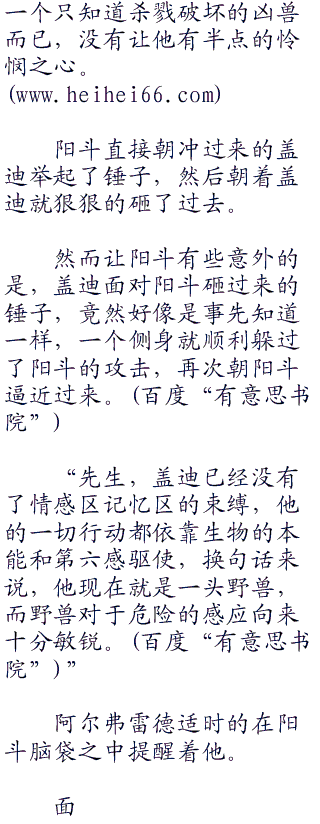 一个只知道杀戮破坏的凶兽
而已，没有让他有半点的怜
悯之心。
(www.heihei66.com)
阳斗直接朝冲过来的盖
迪举起了锤子，然后朝着盖
迪就狠狠的砸了过去。
然而让阳斗有些意外的
是，盖迪面对阳斗砸过来的
锤子，竟然好像是事先知道
一样，一个侧身就顺利躲过
了阳斗的攻击，再次朝阳斗
逼近过来。(百度“有意思书
院”)
“先生，盖迪已经没有
了情感区记忆区的束缚，他
的一切行动都依靠生物的本
能和第六感驱使，换句话来
说，他现在就是一头野兽，
而野兽对于危险的感应向来
十分敏锐。(百度“有意思书
院”)”
阿尔弗雷德适时的在阳
斗脑袋之中提醒着他。
面